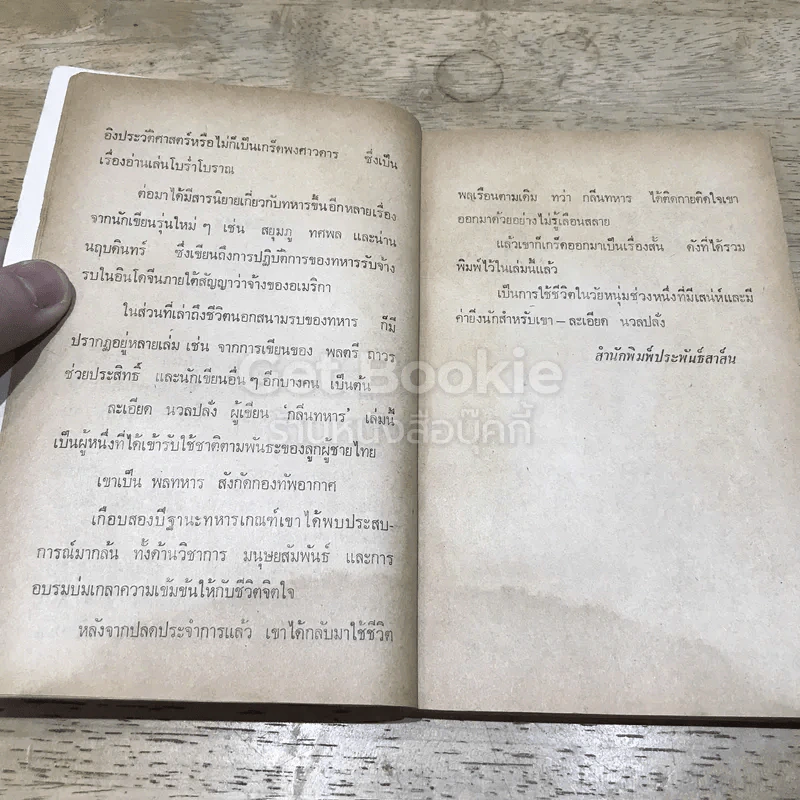 อิงประวัติศาสตร์หรือไม่ก็เป็นเกร็ดพงศาวดาร ซึ่งเป็น
เรื่องอ่านเล่นโบร่ำโบราณ
ต่อมาได้มีสารนิยายเกี่ยวกับทหารขึ้นอีกหลายเรื่อง
จากนักเขียนรุ่นใหม่ ๆ เช่น สยุมภู ทศพล และน่าน
นฤบดินทร์ ซึ่งเขียนถึงการปฏิบัติการของทหารรับจ้าง
รบในอินโดจีนภายใต้สัญญาว่าจ้างของอเมริกา
ในส่วนที่เล่าถึงชีวิตนอกสนามรบของทหาร ก็มี
ปรากฏอยู่หลายเล่ม เช่น จากการเขียนของ พลตรี ถาวร
ช่วยประสิทธิ์ และนักเขียนอื่น ๆ อีกบางคน เป็นต้น
ละเอียด นวลปลั่ง ผู้เขียน ‘กลิ่นทหาร’ เล่มนี้
เป็นผู้หนึ่งที่ได้เข้ารับใช้ชาติตามพันธะของลูกผู้ชายไทย
เขาเป็น พลทหาร สังกัดกองทัพอากาศ
เกือบสองปีฐานะทหารเกณฑ์เขาได้พบประสบ-
การณ์มากล้น ทั้งด้านวิชาการ มนุษยสัมพันธ์ และการ
อบรมบ่มเกลาความเข้มข้นให้กับชีวิตจิตใจ
หลังจากปลดประจำการแล้ว เขาได้กลับมาใช้ชีวิต
พลเรือนตามเดิม ทว่า กลิ่นทหาร ได้ติดกายติดใจเขา
ออกมาด้วยอย่างไม่รู้เลือนสลาย
แล้วเขาก็เกร็ดออกมาเป็นเรื่องสั้น ดังที่ได้รวม
พิมพ์ไว้ในเล่มนี้แล้ว
เป็นการใช้ชีวิตในวัยหนุ่มช่วงหนึ่งที่มีเสน่ห์และมี
ค่ายิ่งนักสำหรับเขา – ละเอียด นวลปลั่ง
สำนักพิมพ์ประพันธ์สาส์น
Get Bookie
ร้านหนังสือบุ๊คกี้